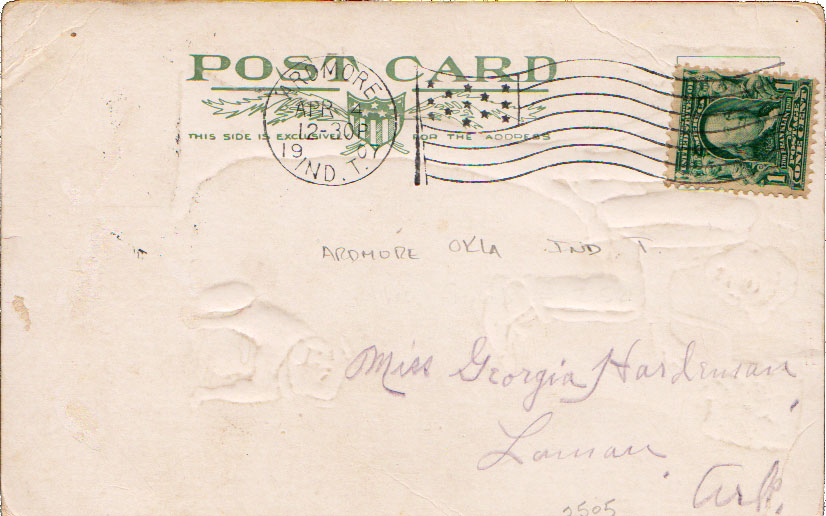 POST CARD
THIS SIDE IS EXCLUSIVELY FOR THE ADDRESS
ARDMORE
APR 4
12-30P
1907
IND. T.
1
ARDMORE OKLA IND. T.
Miss Georgia Hardeman
Lamar,
Ark.
2505